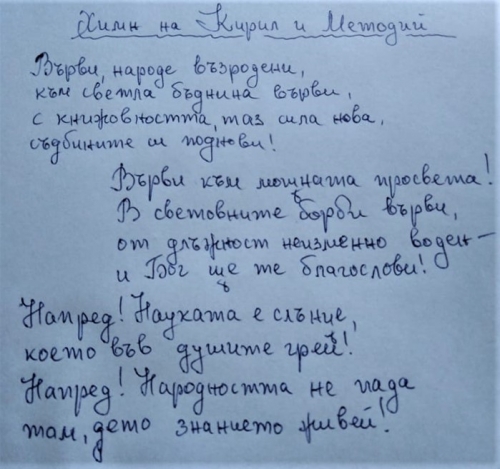 Химн на Кирил и Методий
Върви, народе възродени,
към светла бъднина върви,
с книжовността, таз сила нова,
съдбините си поднови!
Върви към мощната просвета!
В световните борби върви,
от длъжност неизменно воден –
и Бог ще те благослови!
Напред! Науката е слънце,
което във душите грей!
Напред! Народността не пада
там, дето знанието живей!